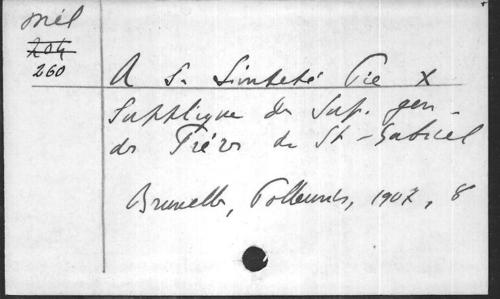 Mél
204
260
A S. Sinteté Pie X
Supplique du Sup. gen.
des Fréres de St-Gabriel
Bruxelles, Polleunis, 1907, 8